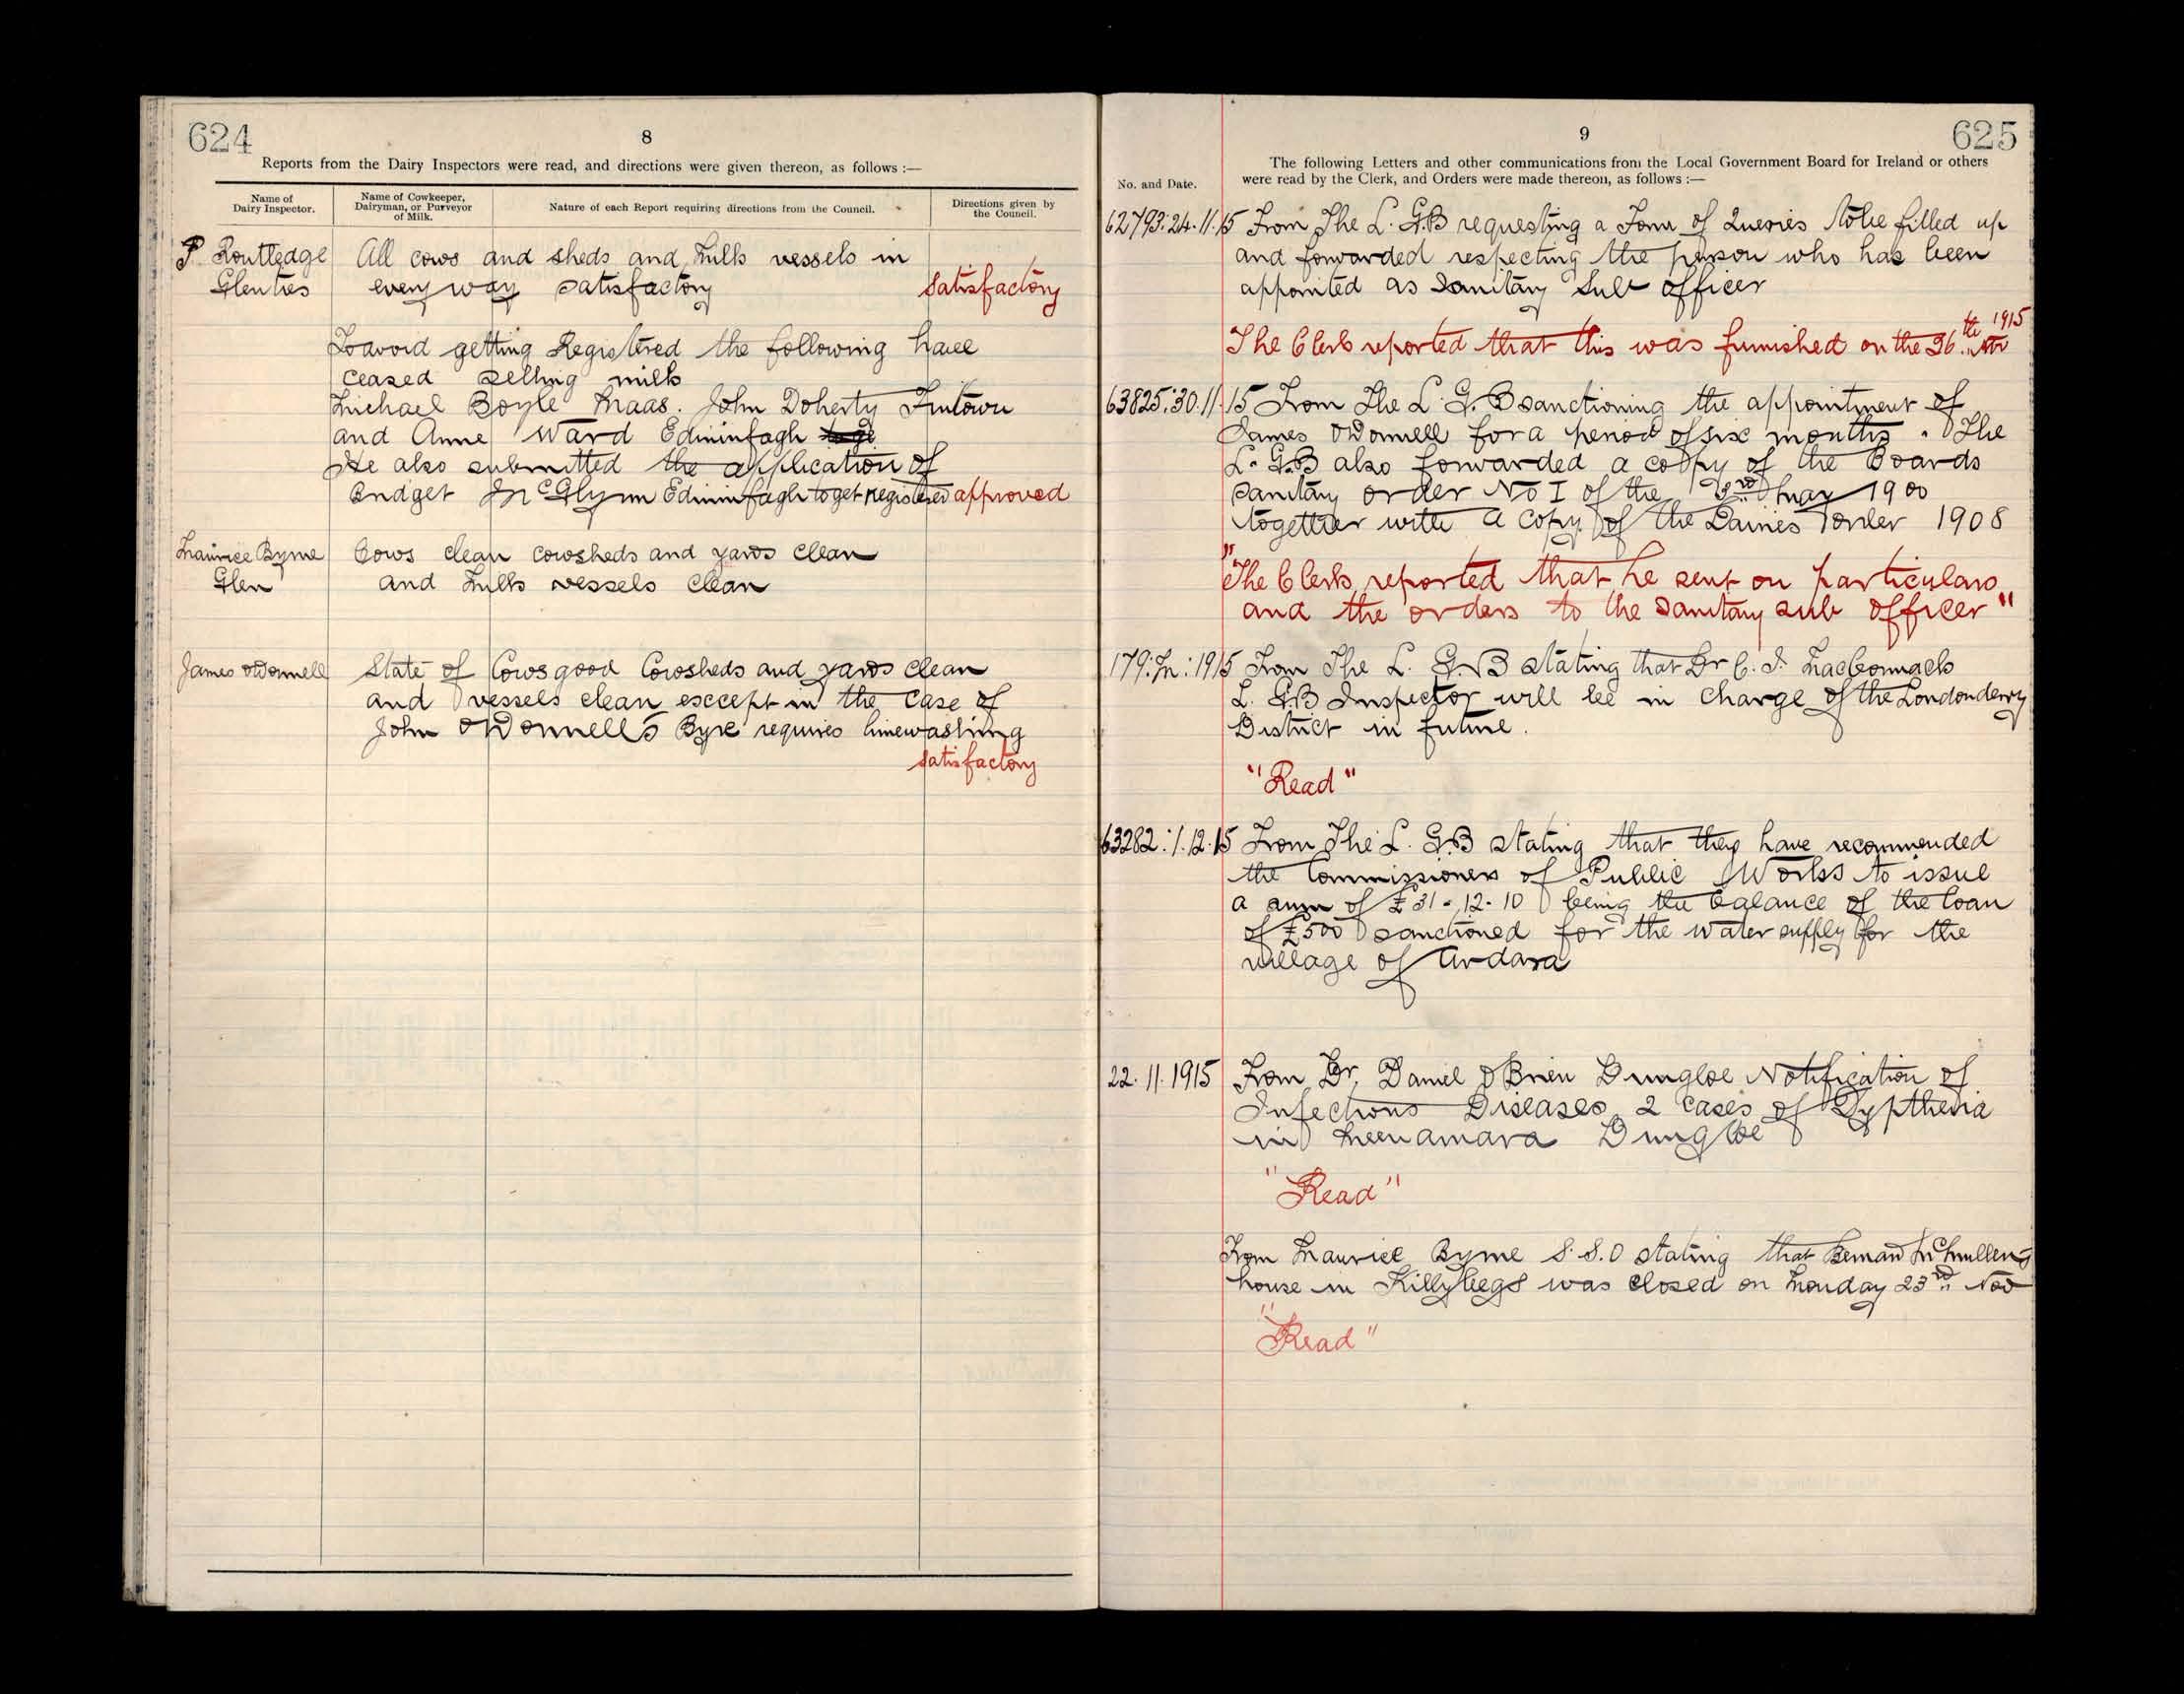 624
8
Reports from the Dairy Inspectors were read, and directions were given thereon, as follows :—
Name of
Dairy Inspector.
Name of Cowkeeper,
Dairyman, or Purveyor
of Milk.
Nature of each Report requiring directions from the Council.
Directions given by
the Council.
P Routledge All cows and sheds and Milk vessels in
Glenties every way satisfactory satisfactory
To avoid getting Registered the following have
ceased selling milk
Michael Boyle Maas. John Doherty Fintown
and Anne Ward Edininfagh to ge
He also submitted the application of
Bridget McGlynn Edininfagh to get registered approved
Maurice Byrne Cows clean cowsheds and yards clean
Glen and Milk vessels clean
James ODonnell State of Cows good Cowsheds and yards clean
and vessels clean esccept in the case of
John ODonnell's Byre requires limewashing
satisfactory
9
625
No. and Date.
The following Letters and other communications from the Local Government Board for Ireland or others
were read by the Clerk, and Orders were made thereon, as follows :—
62793:24.11.15 From The L. G.B requesting a Form of Queries to be filled up
and forwarded respecting the person who has been
appointed as Sanitary Sub officer
The Clerk reported that this was furnished on the 26th 1915
63825:30.11.15 From The L. G. B sanctioning the appointment of
James ODonnell for a period of six months. The
L. G.B also forwarded a copy of the Boards
Sanitary order No I of the 3rd May 1900
together with a copy of the Dairies order 1908
"The Clerk reported that he sent on particulars
and the orders to the Sanitary sub officer"
179:M:1915 From The L. G.B stating that Dr C. J. MacCormack
L. G.B Inspector will be in charge of the Londonderry
District in future.
"Read"
63282:1.12.15 From The L. G.B stating that they have recommended
the Commissioners of Public Works to issue
a sum of £31-12-10 being the balance of the loan
of £500 sanctioned for the water supply for the
village of Ardara
22.11.1915 From Dr. Daniel OBrien Dungloe Notification of
Infectious Diseases 2 cases of Dyptheria
in Meenamara Dungloe
"Read"
From Maurice Byrne S.S.O stating that Bernard McMullens
house in Killybegs was closed on Monday 23rd Nov
"Read"